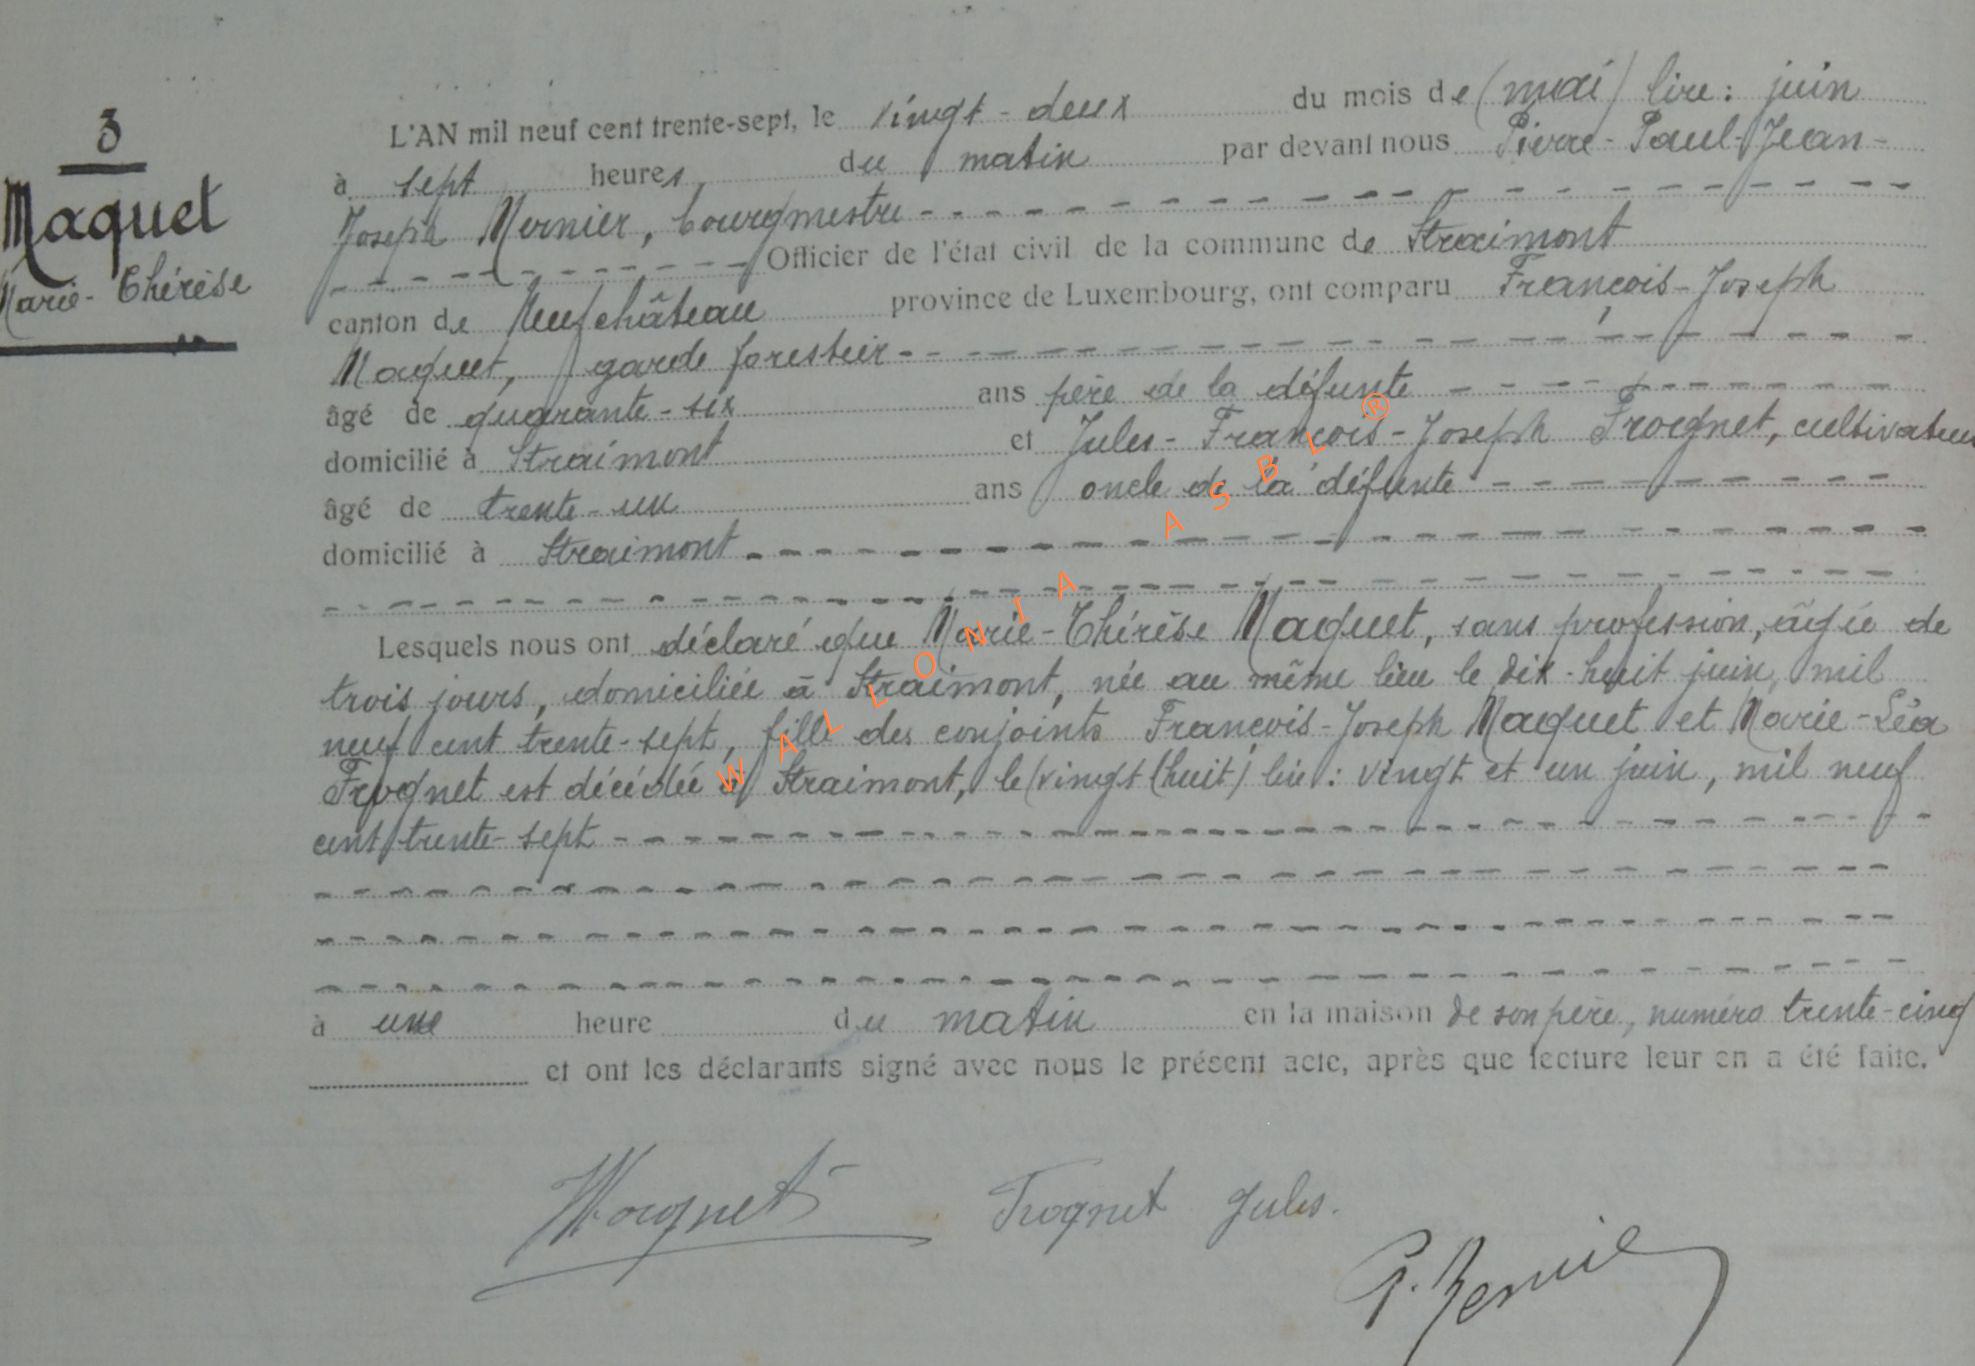 3
Maquet
Marie-Thérèse
L'AN mil neuf cent trente-sept, le vingt-deux du mois de (mai) lire : juin
à sept heures du matin par devant nous Pierre-Paul-Jean-
Joseph Mernier, bourgmestre
Officier de l'état civil de la commune de Straimont
canton de Neufchâteau province de Luxembourg, ont comparu François-Joseph
Maquet, garde forestier
âgé de quarante-six ans père de la défunte
domicilié à Straimont et Jules-François-Joseph Frognet, cultivateur
âgé de trente-un ans oncle de la défunte
domicilié à Straimont
Lesquels nous ont déclaré que Marie-Thérèse Maquet, sans profession, âgée de
trois jours, domiciliée à Straimont, née au même lieu le dix-huit juin, mil
neuf cent trente-sept, fille des conjoints François-Joseph Maquet et Marie-Léa
Frognet est décédée à Straimont, le (vingt (huit) lire : vingt et un juin, mil neuf
cent trente-sept
à une heure du matin en la maison de son père, numéro trente-cinq
et ont les déclarants signé avec nous le présent acte, après que lecture leur en a été faite.
Maquet Frognet Jules.
P. Mernier
WALLONIA ASBL ®